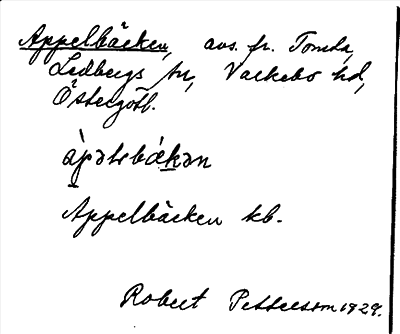 Appelbäcken, avs. fr. Tomta,
Ledbergs sn, Valkebo hd,
Östergötl.
Appelbäcken kb.
Robert Pettersson 1929.